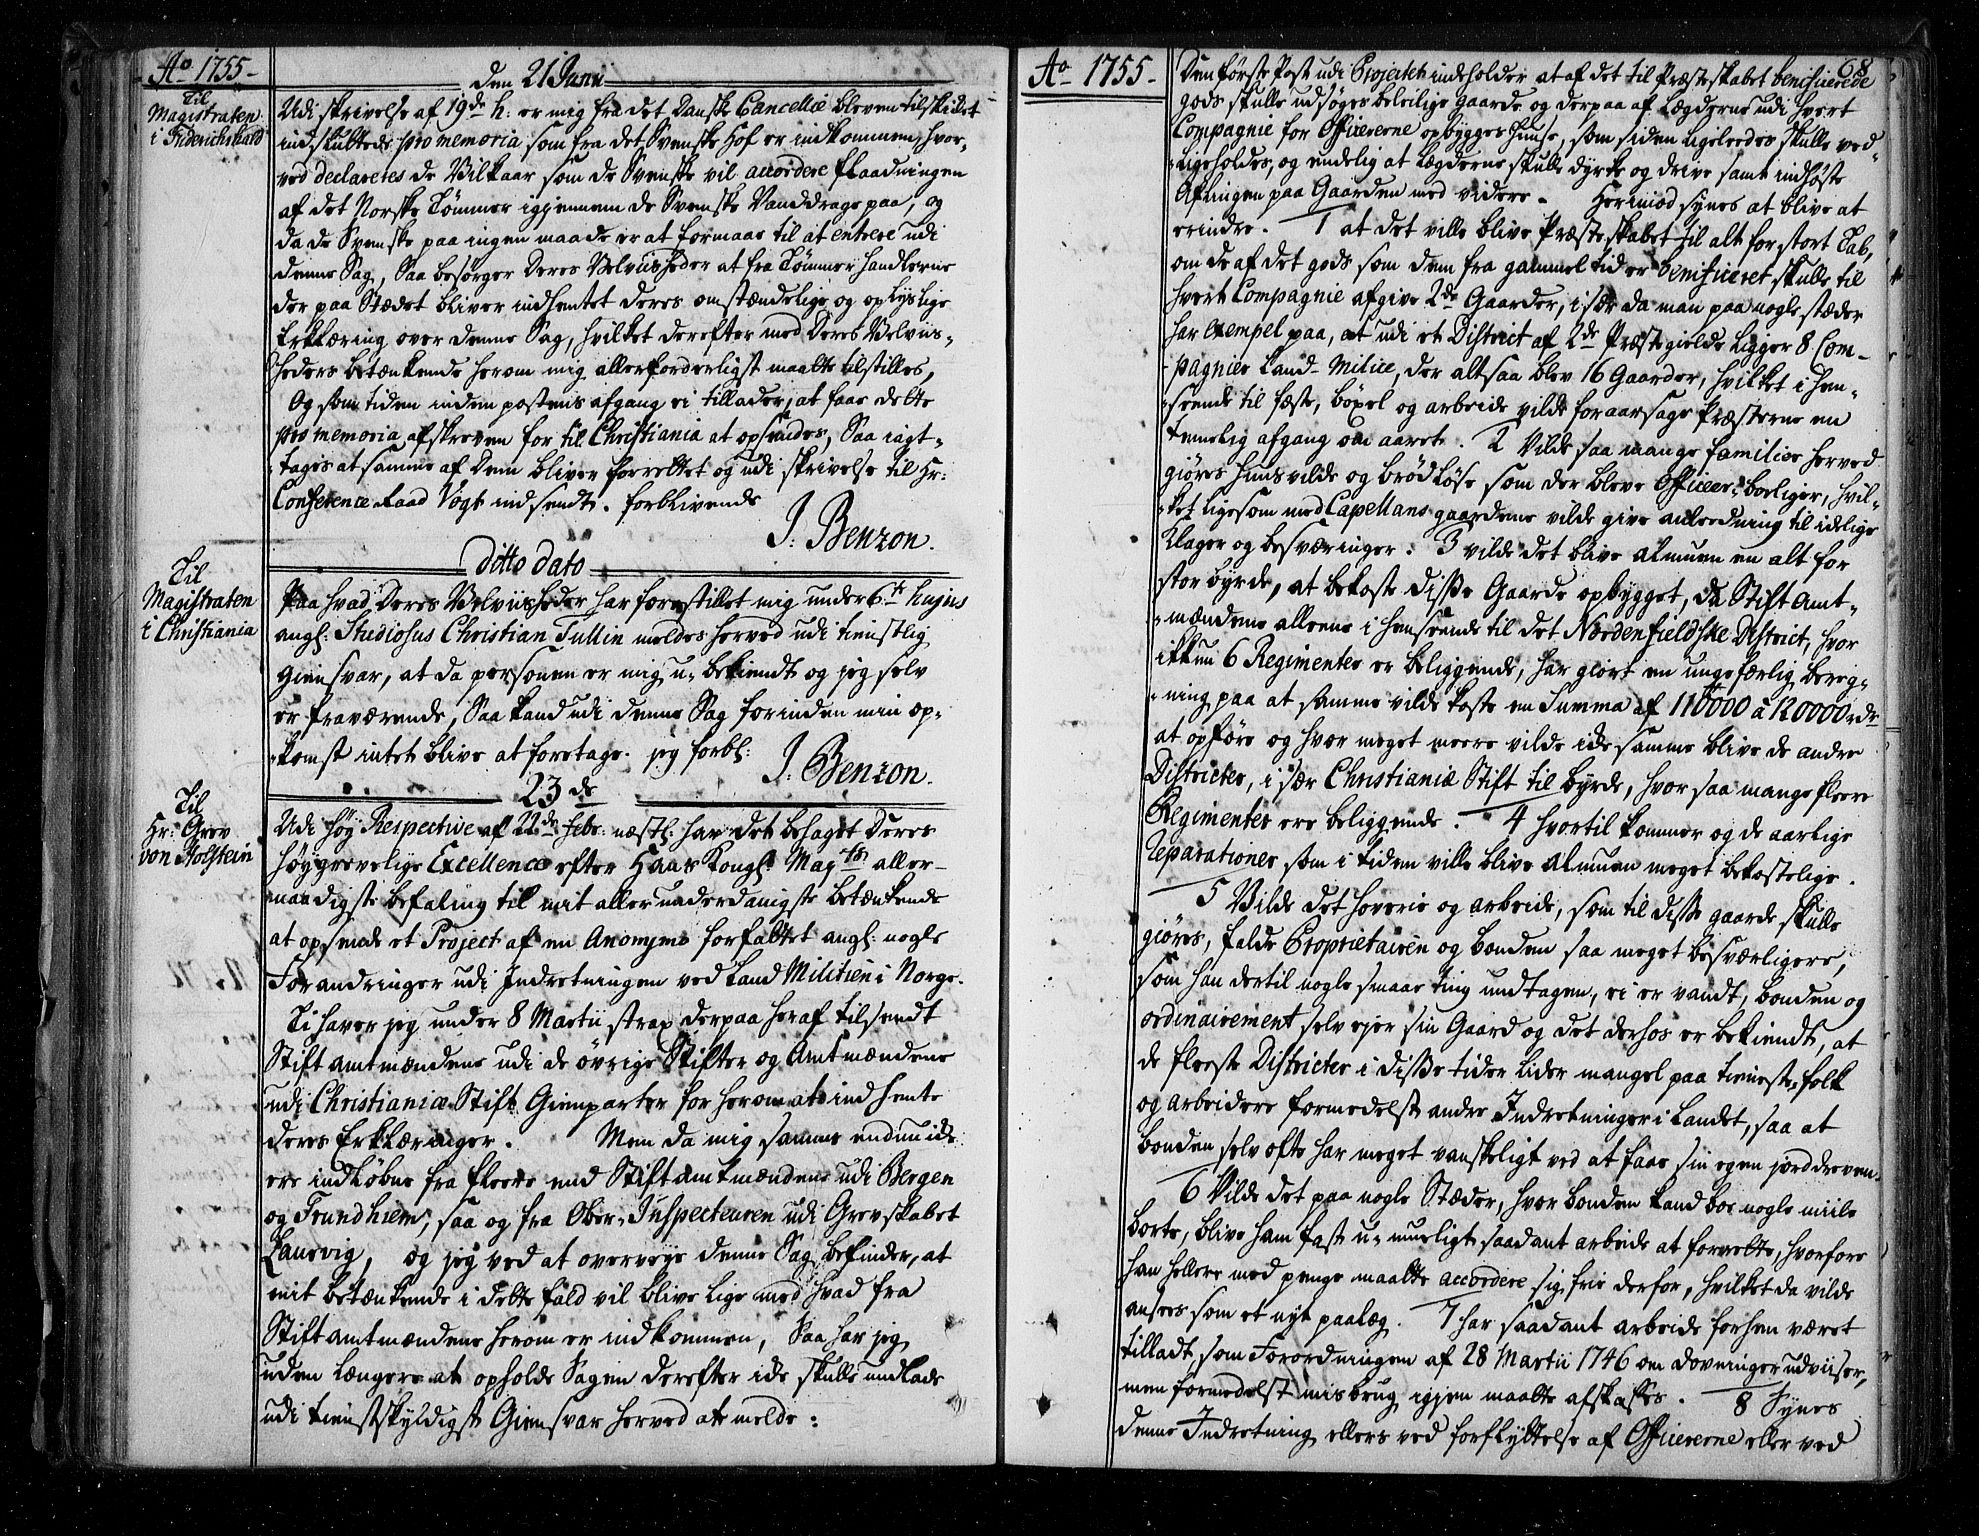 Ao 1755-
den 21 Junii
Til
Magistraten
i Friderichshald
Udi skrivelse af 19de h: er mig fra det Danske Cancellie bleven tilskiket
indsluttede promemoria som fra det Svenske Hof er indkommen, hvor-
ved declareres de Vilkaar som de Svenske vil accordere flaadningen
af det Norske Tømmer igjennem de Svenske Vanddrage paa, og
da de Svenske paa ingen maade er at formaae til at entrere udi
denne Sag, Saa besørger Deres Velviisheder at fra Tømmer handlerne
der paa Stædet bliver indhentet deres omstændelige og oplyslige
Erklæring over denne Sag, hvilket derefter med Deres Velviis-
heders betænkende herom mig allerforderligst maatte tilstilles,
Og som tiden inden postens afgang ei tillader, at faae dette
promemoria afskreven for til Christiania at opsendes, Saa iagt-
tages at samme af Dem bliver forrettet og udi skrivelse til Hr:
Conference Raad Vogt indsendt. forblivende
J: Benzon.
ditto dato
Til
Magistraten
i Christiania
Paa hvad Deres Velviisheder har forestillet mig under 6te hujus
angl: Studiosus Christian Tullin meldes herved udi tienstlig
Giensvar, at da personen er mig u-bekiendt og jeg selv
er fraværende, Saa kand udi denne Sag forinden min op-
komst intet blive at foretage. jeg forbl:
J: Benzon.
23de
Til
Hr: Grev
von Holstein
Udi høy Respective af 22de Febr: næstl: har det behaget Deres
høygrevelige Excellence efter Hans Kongl: Mayts aller-
naadigste befaling til mit allerunderdanigste betænkende
at opsende et Project af en Anonymo forfattet angl: nogle
Forandringer udi Indretningen ved Land Militien i Norge.
Ti haver jeg under 8 Martii strax derpaa heraf tilsendt
Stiftamtmændene udi de øvrige Stifter og Amtmændene
udi Christianiæ Stift Gienparter for herom at indhente
deres Erklæringer. Men da mig samme endnu ikke
ere indløbne fra fleere end Stiftamtmændene udi Bergen
og Trundhiem, saa og fra Ober-Inspecteuren udi Grevskabet
Laurvig, og jeg ved at overveye denne Sag befinder, at
mit betænkende i dette fald vil blive lige med hvad fra
Stiftamtmændene herom er indkommen, Saa har jeg
uden længere at opholde Sagen derefter ikke skulle undlade
udi tienstskyldigst Giensvar herved at melde:
Ao 1755-
68
Den første Post udi Projectet indeholder at af det til Præsteskabet benificerede
gods skulle udsøges beleilige gaarde og derpaa af Lægderne udi hvert
Compagnie for Officererne opbygges Huuse, som siden ligeledes skulle ved-
ligeholdes, og endelig at Lægderne skulle dyrke og drive samt indhøste
Aflingen paa Gaarden med videre. Herimod synes at blive at
erindre. 1 at det ville blive Præsteskabet til alt for stort Tab,
om de af det gods som dem fra gammel tid er benificeret skulle til
hvert Compagnie afgive 2de Gaarder, i sær da man paa nogle stæder
har exempel paa, at udi et District af 2de Præstegielde ligger 8 Com-
pagnier Land-Milice, der altsaa blev 16 Gaarder, hvilket i hen-
seende til fæste, bøxel og arbeide vilde foraarsage Præsterne en
temelig afgang om aaret. 2 Vilde saa mange familier herved
giøres huusvilde og brødløse som der bleve Officeer-boeliger, hvil-
ket ligesom med Capellans-gaardene vilde give anledning til idelige
Klager og besværinger. 3 vilde det blive almuen en alt for
stor byrde, at bekoste disse Gaarde opbygget, da Stiftamt-
mændene alleene i henseende til det Nordenfieldske District, hvor
ikkun 6 Regimenter er beliggende, har giort en ungefærlig bereg-
ning paa at samme vilde koste en Summa af 110000 à 120000rdr
at opføre og hvor meget meere vilde ikke samme blive de andre
Districter, i sær Christianiæ Stift til byrde, hvor saa mange fleere
Regimenter ere beliggende. 4 hvortil kommer og de aarlige
reparationer som i tiden ville blive almuen meget bekostelige.
5 Vilde det hoverie og arbeide, som til disse gaarde skulle
giøres, falde Proprietairen og bonden saa meget besværligere,
som han dertil nogle smaae ting undtagen, ei er vandt, bonden og
ordinairement selv ejer sin Gaard og det derhos er bekiendt, at
de fleeste Districter i disse tider lider mangel paa tieneste-folk
og arbeidere formedelst andre Indretninger i Landet, saa at
bonden selv ofte har meget vanskeligt ved at faae sin egen jord dreven.
6 Vilde det paa nogle Stæder, hvor bonden kand boe nogle miile
borte, blive ham fast u-mueligt saadant arbeide at forrette, hvorfore
han hellere med penge maatte accordere sig frie derfor, hvilket da vilde
ansees som et nyt paalæg. 7 har saadant arbeide forhen været
tilladt, som Forordningen af 28 Martii 1746 om dovninger udviiser,
men formedelst misbrug igjen maatte afskaffes. 8 Synes
denne Indretning ellers ved forflyttelse af Officererne eller ved